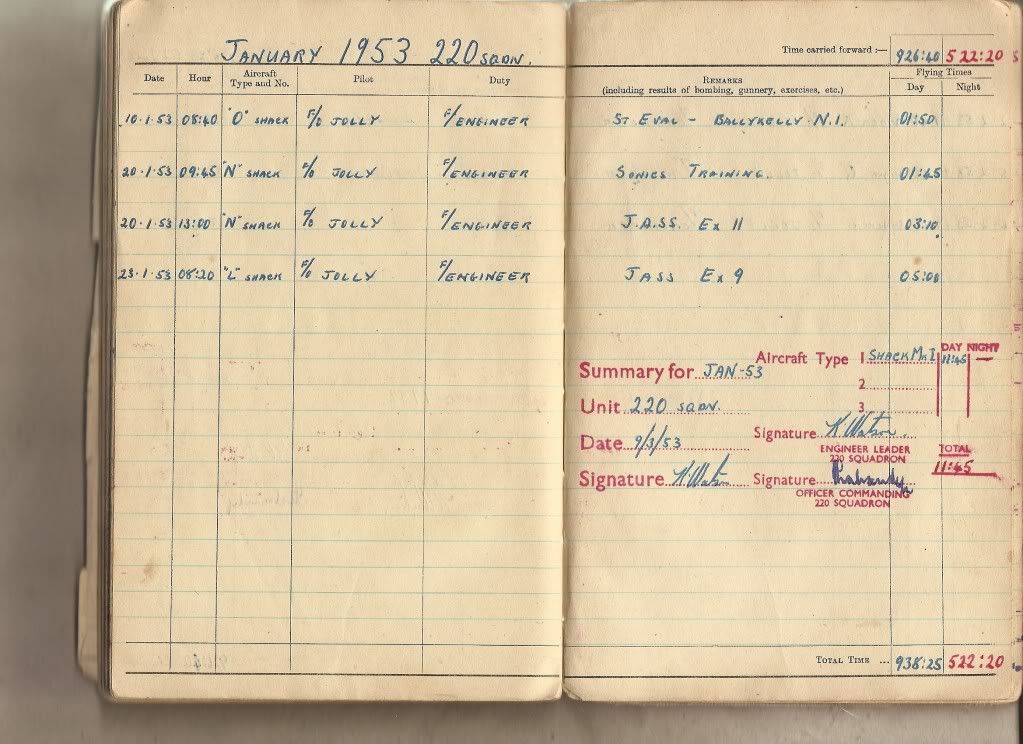 JANUARY 1953 220 SQDN.
Time carried forward :— 926:40 522:20
Date Hour Aircraft Type and No. Pilot Duty REMARKS (including results of bombing, gunnery, exercises, etc.) Flying Times Day Night
10·1·53 08:40 "O" SHACK F/O JOLLY F/ENGINEER ST EVAL - BALLYKELLY N.I. 01:50
20·1·53 09:45 "N" SHACK F/O JOLLY F/ENGINEER SONICS TRAINING. 01:45
20·1·53 13:00 "N" SHACK F/O JOLLY F/ENGINEER J.A.S.S. Ex 11 03:10
23·1·53 08:20 "L" SHACK F/O JOLLY F/ENGINEER JASS Ex 9 05:00
DAY NIGHT
Summary for JAN-53 Aircraft Type 1 SHACK Mk I 11:45 —
2
Unit 220 SQDN. 3
Date 9/3/53 Signature K Watson
ENGINEER LEADER
220 SQUADRON
TOTAL
11:45
Signature K Watson Signature
OFFICER COMMANDING
220 SQUADRON
TOTAL TIME ... 938:25 522:20